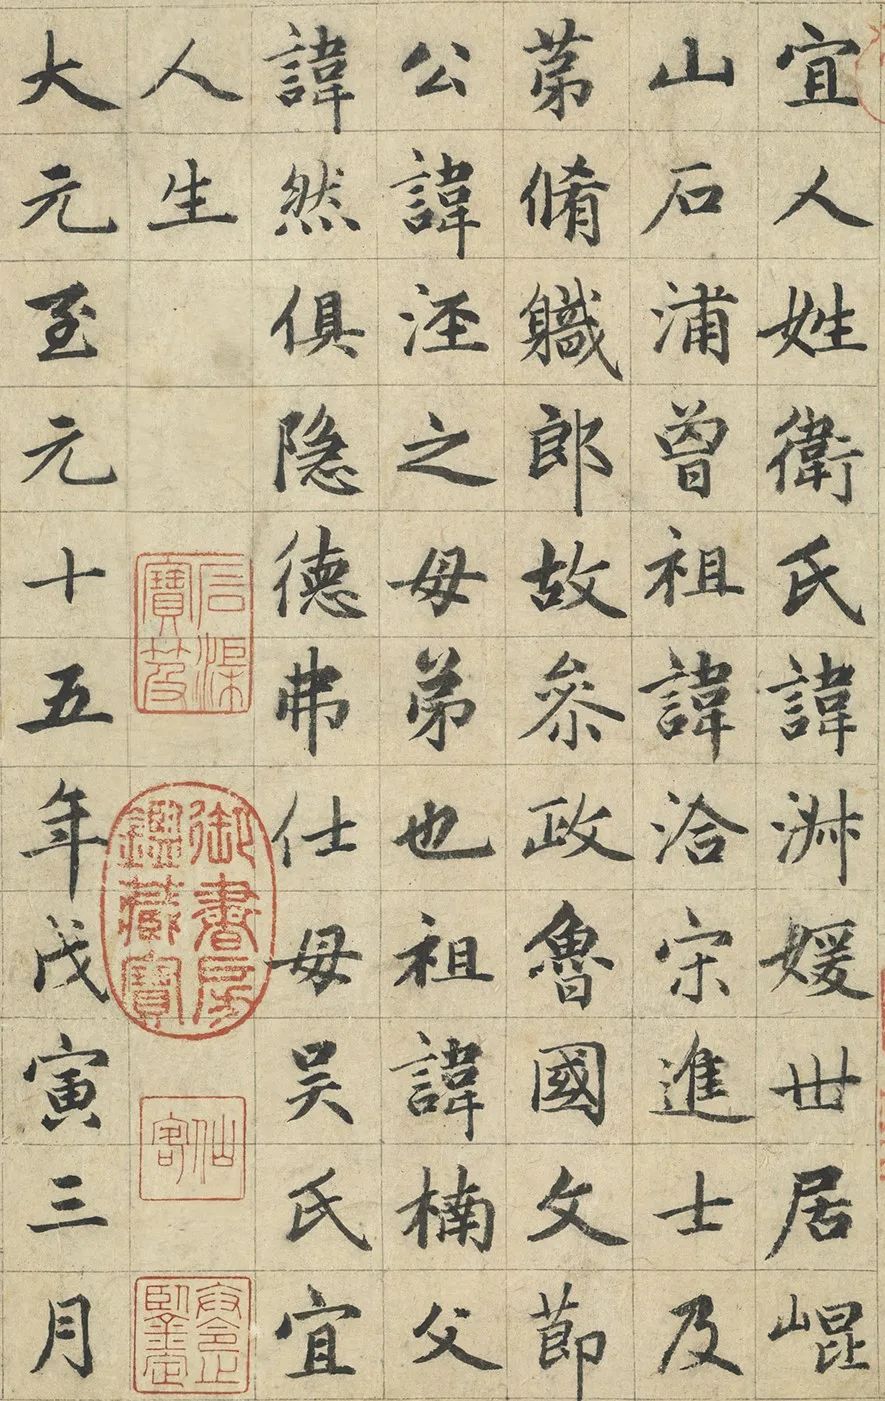 宜人姓衛氏諱淋媛世居崐
山石浦曾祖諱洽宋進士及
苐脩軄郎故叅政魯國文節
公諱涇之母弟也祖諱楠父
諱然俱隐德弗仕母吴氏宜
人生
大元至元十五年戊寅三月
石渠寶笈
御書房鑑藏寶
仙客